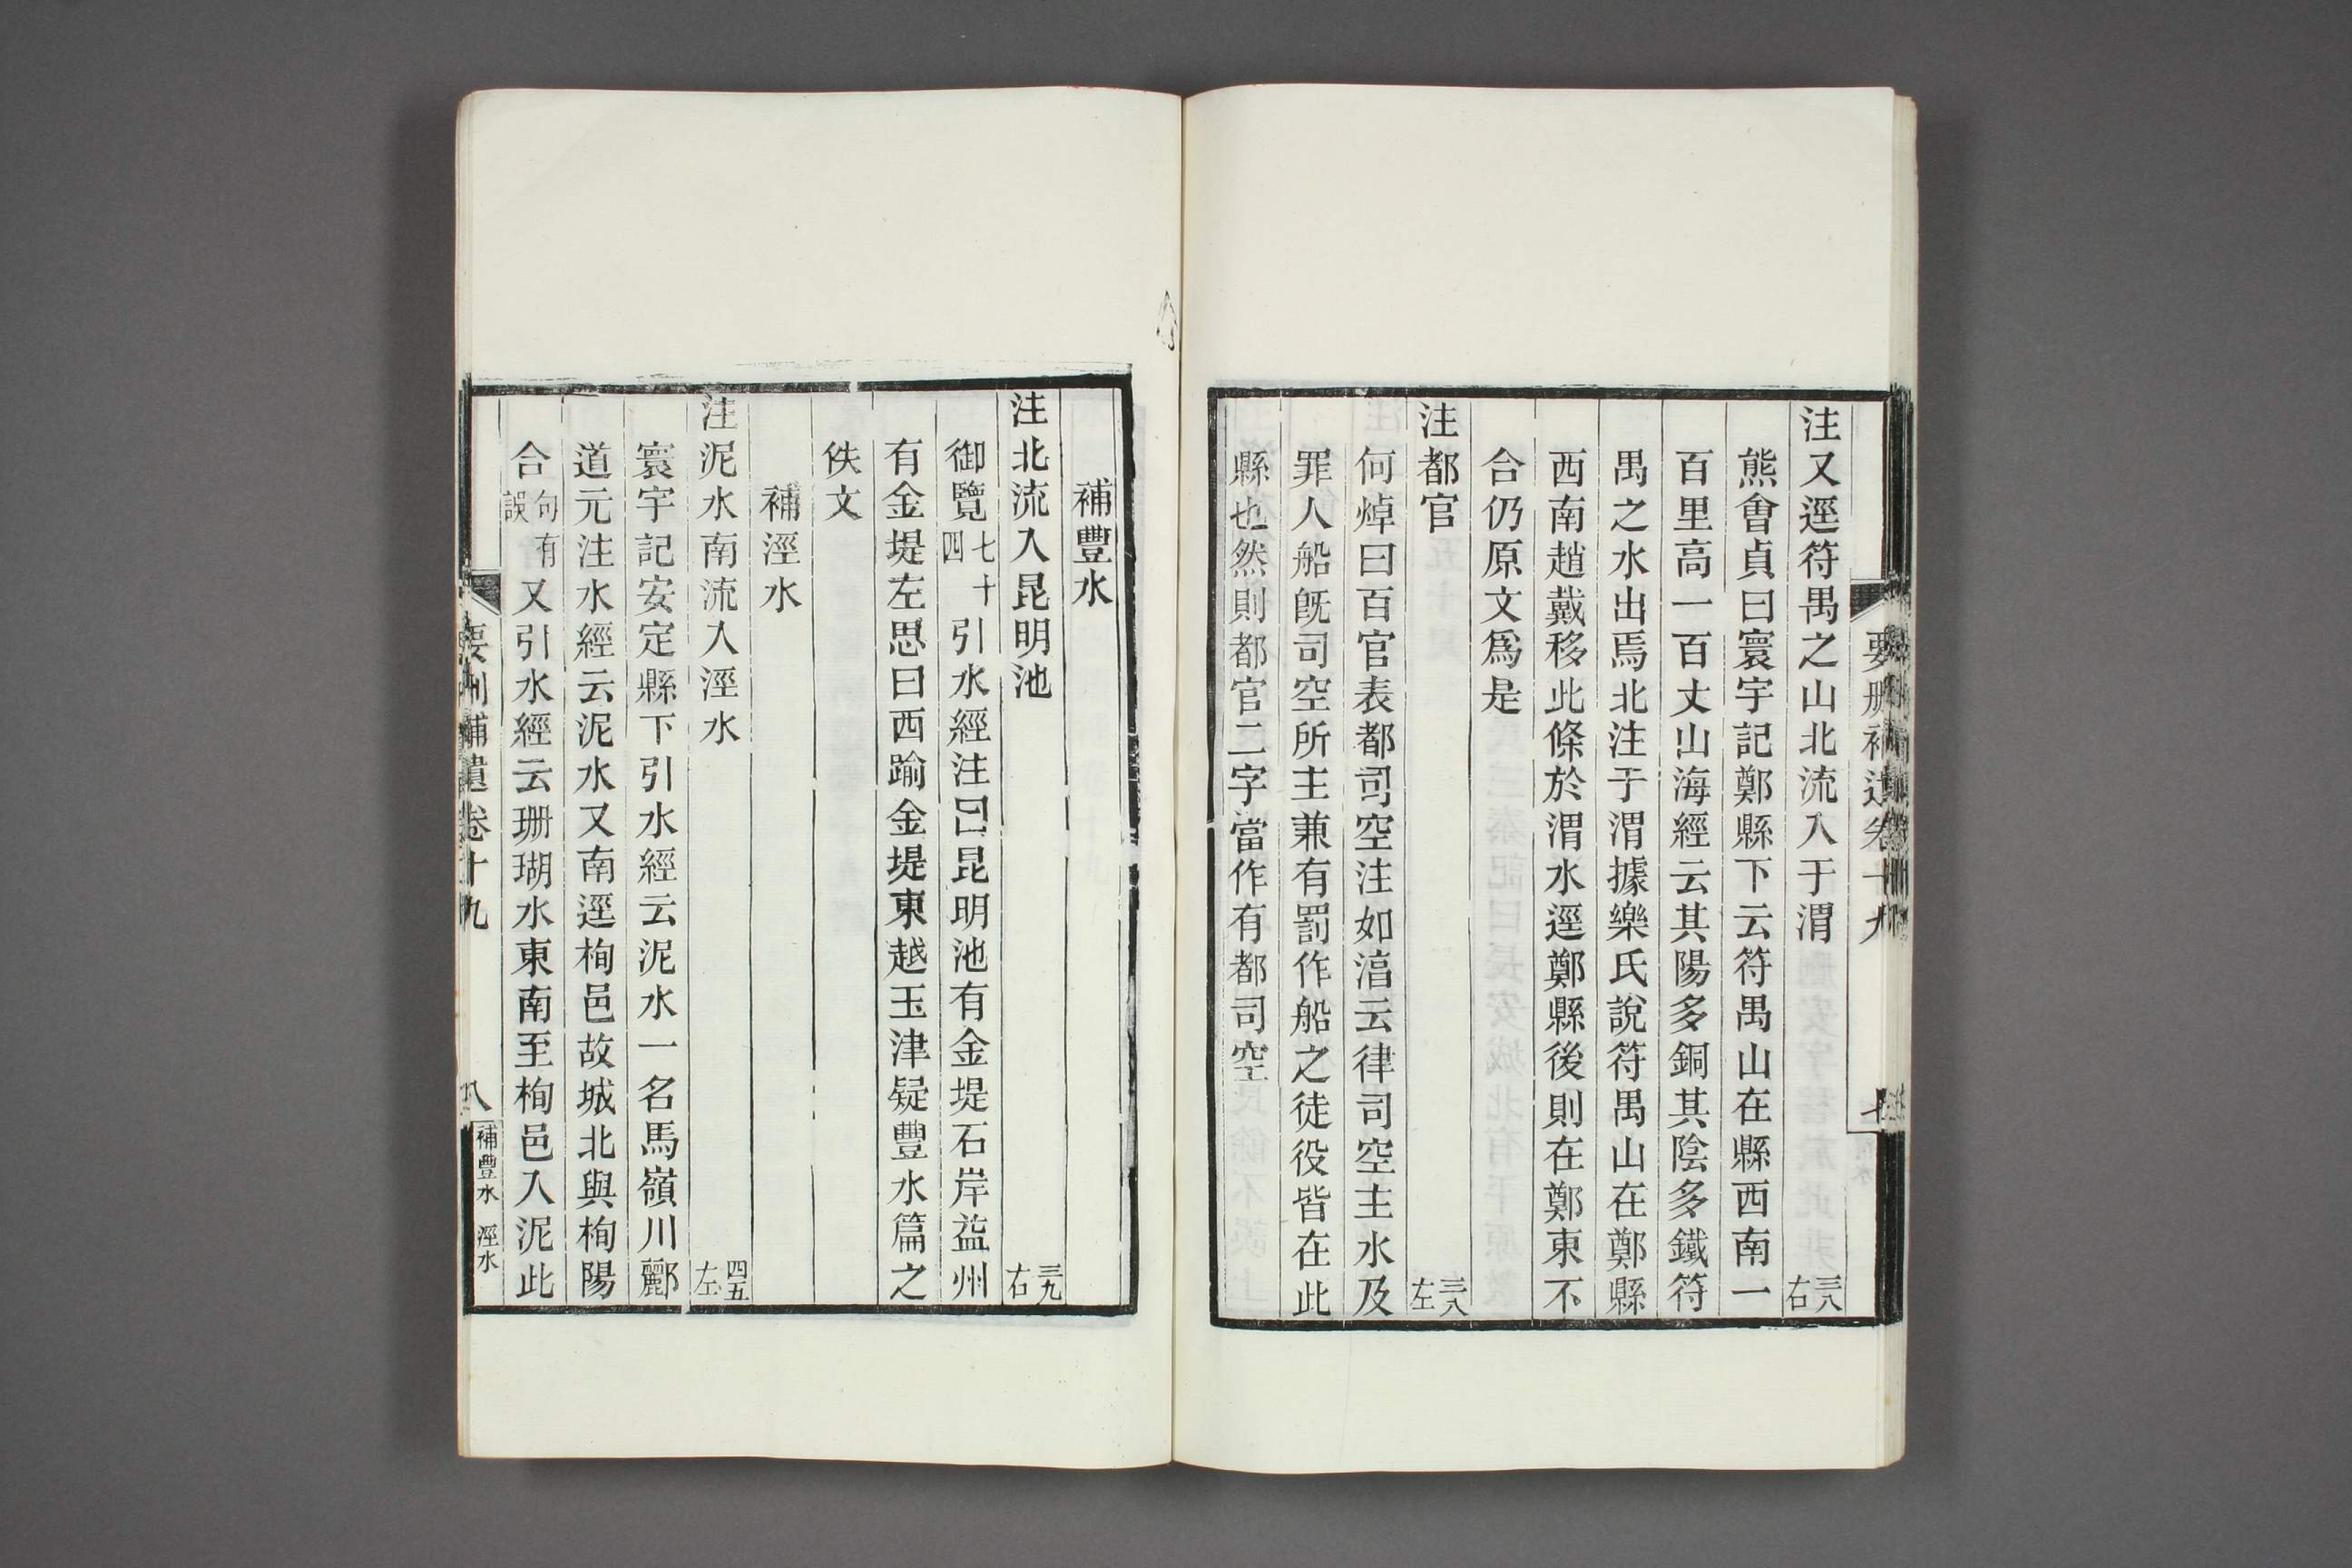 要刪補遺卷十九
七
注又逕符禺之山北流入于渭 三八右
熊會貞曰寰宇記鄭縣下云符禺山在縣西南一
百里高一百丈山海經云其陽多銅其陰多鐵符
禺之水出焉北注于渭據樂氏說符禺山在鄭縣
西南趙戴移此條於渭水逕鄭縣後則在鄭東不
合仍原文爲是
注都官 三八左
何焯曰百官表都司空注如湻云律司空主水及
罪人船旣司空所主兼有罰作船之徒役皆在此
縣也然則都官二字當作有都司空
補豐水
注北流入昆明池 三九右
御覽七十四引水經注曰昆明池有金堤石岸益州
有金堤左思曰西踰金堤東越玉津疑豐水篇之
佚文
補涇水
注泥水南流入涇水 四五左
寰宇記安定縣下引水經云泥水一名馬嶺川酈
道元注水經云泥水又南逕栒邑故城北與栒陽
合句有誤又引水經云珊瑚水東南至栒邑入泥此
要刪補遺卷十九
八
補豐水 涇水